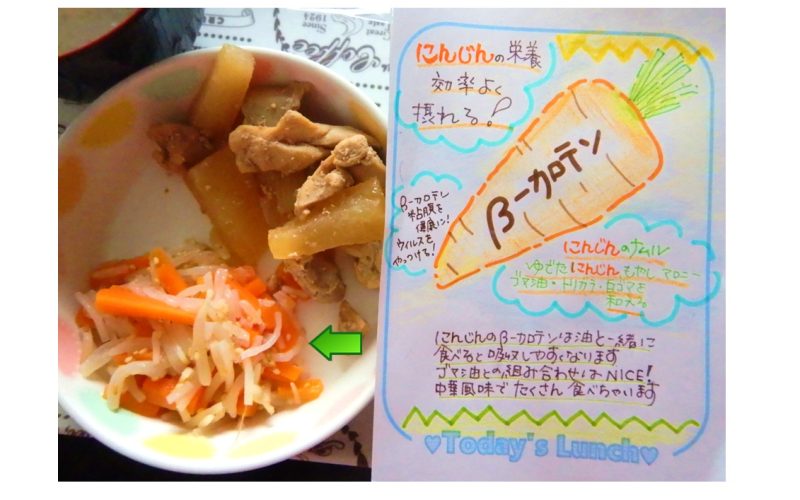 Since
1924
Coffee
にんじんの栄養
効率よく
摂れる!
β-カロテン
β-カロテン
粘膜を
健康に!
ウイルスを
やっつける!
にんじんのナムル
ゆでた にんじん もやし マロニー
ゴマ油・トリガラ・白ゴマを
和える
にんじんのβ-カロテンは油と一緒に
食べると吸収しやすくなります
ゴマ油との組み合わせはNICE!
中華風味で たくさん 食べちゃいます
♥Today's Lunch♥